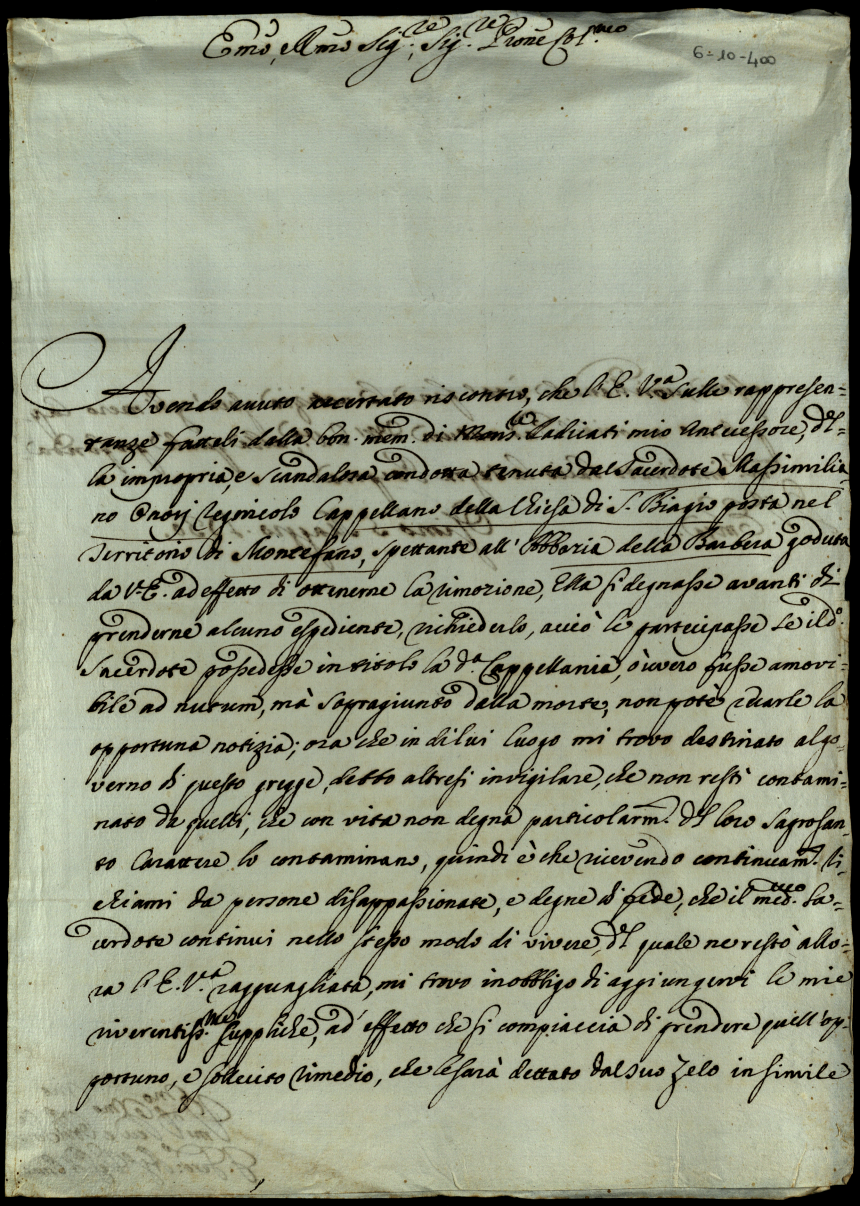 Emo, e Rmo Sig.re, Sig.re Prone Col.mo
6-10-400
Avendo avuto accertato riscontro, che l'E. V.a sulle rappresen=
tanze fatteli dalla bon. mem. di Mons.re mio Antecessore, del=
la impropria, e scandalosa condotta tenuta dal Sacerdote Massimilia=
no Cappellano della Chiesa di S. Biagio posta nel
Territorio di Montefano, spettante all' Abbazia della Barbera goduta
da V. E. ad effetto di ottenerne la rimozione, Ella si degnasse avanti di
prenderne alcuno espediente, richiederlo, acciò le partecipasse se il d.o
Sacerdote possedesse in titolo la d.a Cappellania, òvvero fusse amovi=
bile ad nutum, mà sopragiunto dalla morte, non potè recarle la
opportuna notizia; ora che in di lui luogo mi trovo destinato al go=
verno di questo gregge, debbo altresi invigilare, che non resti contami=
nato da quelli, che con vita non degna particolarm. del loro Sagrosan=
to Carattere lo contaminano, quindi è che ricevendo continuam. ri=
chiami da persone disappassionate, e degne di fede, che il med.mo Sa=
cerdote continui nello stesso modo di vivere, del quale ne restò allo=
ra l'E. V.a ragguagliata, mi trovo in obbligo di aggiungervi le mie
riverentiss.me suppliche, ad' effetto che si compiaccia di prendere quell'op=
portuno, e sollecito rimedio, che le sarà dettato dal suo Zelo in simile